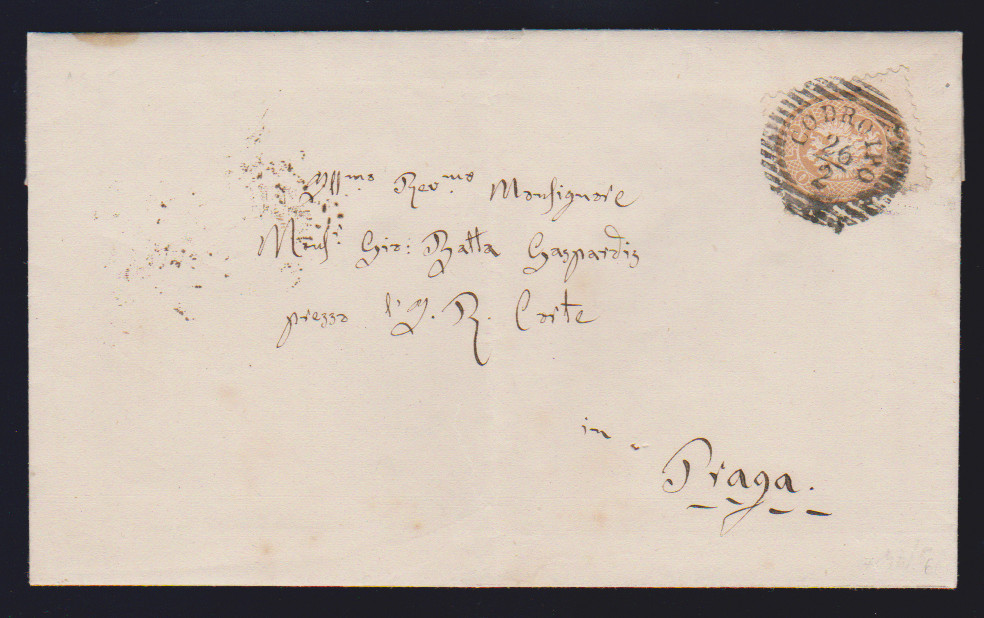 CODROIPO
26
2
Illmo Revmo Monsignore
Monsr Gio: Batta Gaspardis
presso l'I. R. Corte
in
Praga.